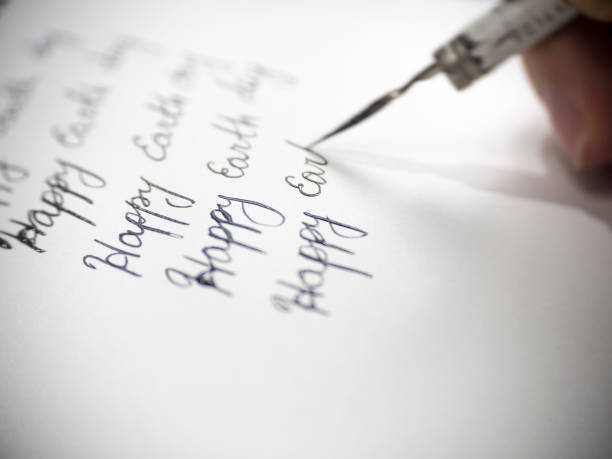 Happy Earth day
Happy Earth day
Happy Earth day
Happy Ear